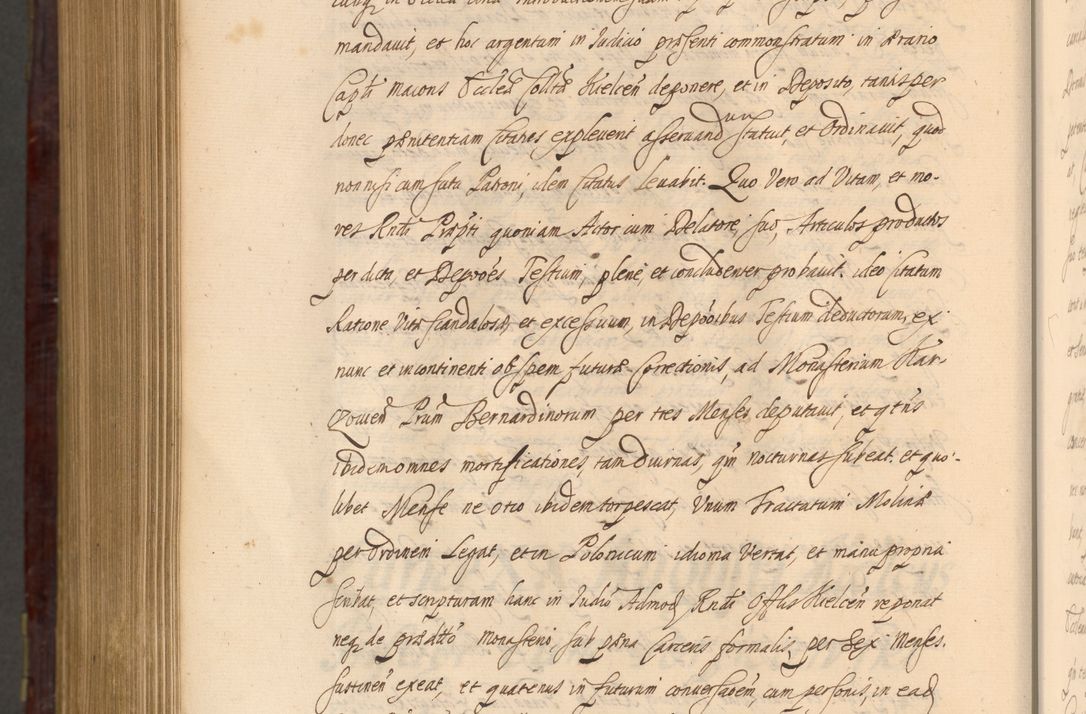 mandavit, et hoc argentum in Iudicio præsenti commonstratum in ærario
Captĩ maioris Eccłeæ Collta Kielceñ deponere, et in Deposito, tamsper
donec pænitentiam Citatus expleverit asservand statuit, et Ordinavit, quod
non nisi cum scitu Patroni, idem Citatus levabit. Quo Vero ad Vitam, et mo-
res Rndi Præpti quoniam Actor cum Delatore, suo, Articulos productos
per dicta, et Depões Testium, plene, et concludenter probavit. ideo citatum
Ratione Vitæ scandalosæ, et excessuum, in Depõibus Testium deductorum, ex
nunc et incontinenti ob spem futuræ Correctionis, ad Monasterium Kar-
czovien Prum Bernardinorum per tres Menses deputavit, et qtñs
ibidem omnes mortificationes, tam diurnas, qm nocturnas subeat. et quo-
libet Mense ne otio ibidem torpescat, Unum Tractatum Molinæ
per Ordinem Legat, et in Polonicum idioma Vertat, et manu propria
scribat, et scripturam hanc in Iudio Admod Rndi Offlis Kielceñ reponat
neq de prædtto Monasterio, sub pæna Carceris formalis, per Sex Menses.
sustineñ exeat, et quatenus in futurum conversaõem, cum personis, in ead